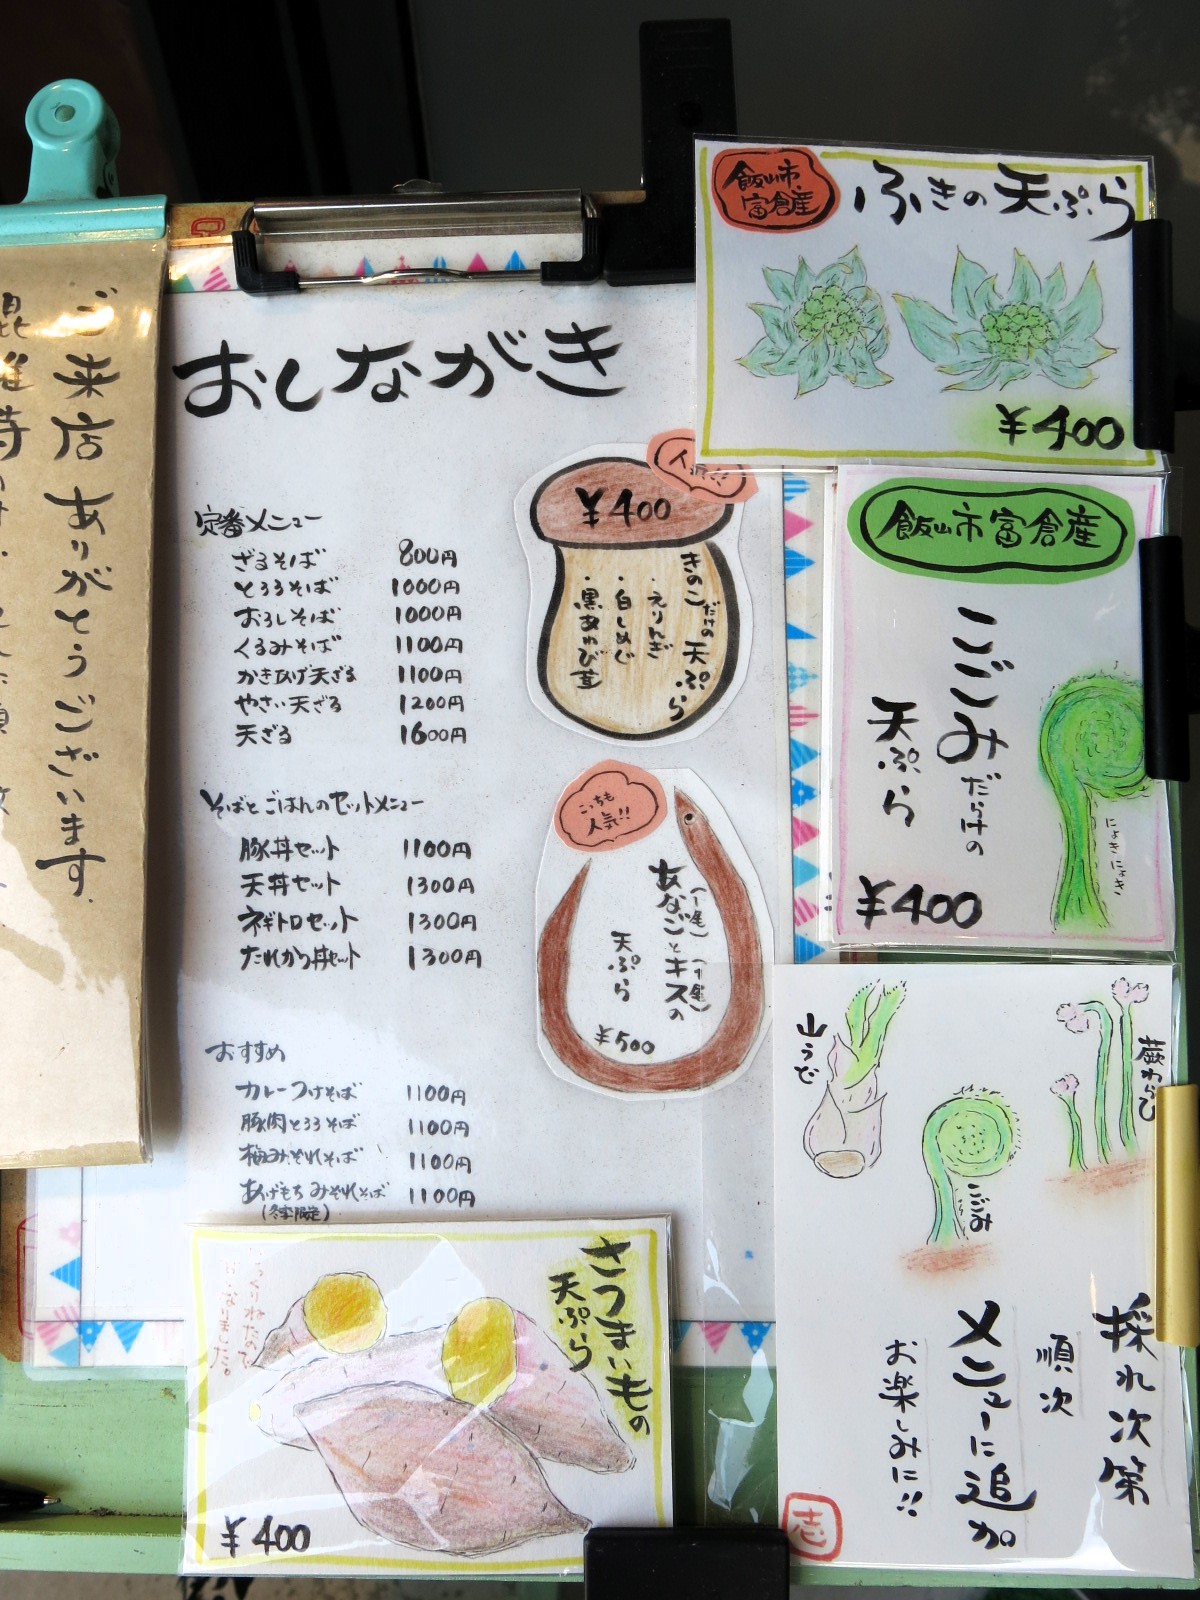 ご来店ありがとうございます。
おしながき
定番メニュー
ざるそば 800円
とろろそば 1000円
おろしそば 1000円
くるみそば 1100円
かきあげ天ざる 1100円
やさい天ざる 1200円
天ざる 1600円
そばとごはんのセットメニュー
豚丼セット 1100円
天丼セット 1300円
ネギトロセット 1300円
たれかつ丼セット 1300円
おすすめ
カレーつけそば 1100円
豚肉とろろそば 1100円
梅みぞれそば 1100円
あげもちみぞれそば 1100円
(冬季限定)
人気!!
¥400
きのこだけの天ぷら
・えりんぎ
・白しめじ
・黒あわび茸
こちも
人気!!
あなご(一尾)とキス(一尾)の
天ぷら
¥500
さつまいもの
天ぷら
¥400
飯山市
富倉産
ふきの天ぷら
¥400
飯山市富倉産
こごみだらけの
天ぷら
にょきにょき
¥400
蕨わらび
こごみ
山うど
採れ次第
順次
メニューに追加
お楽しみに!!
志